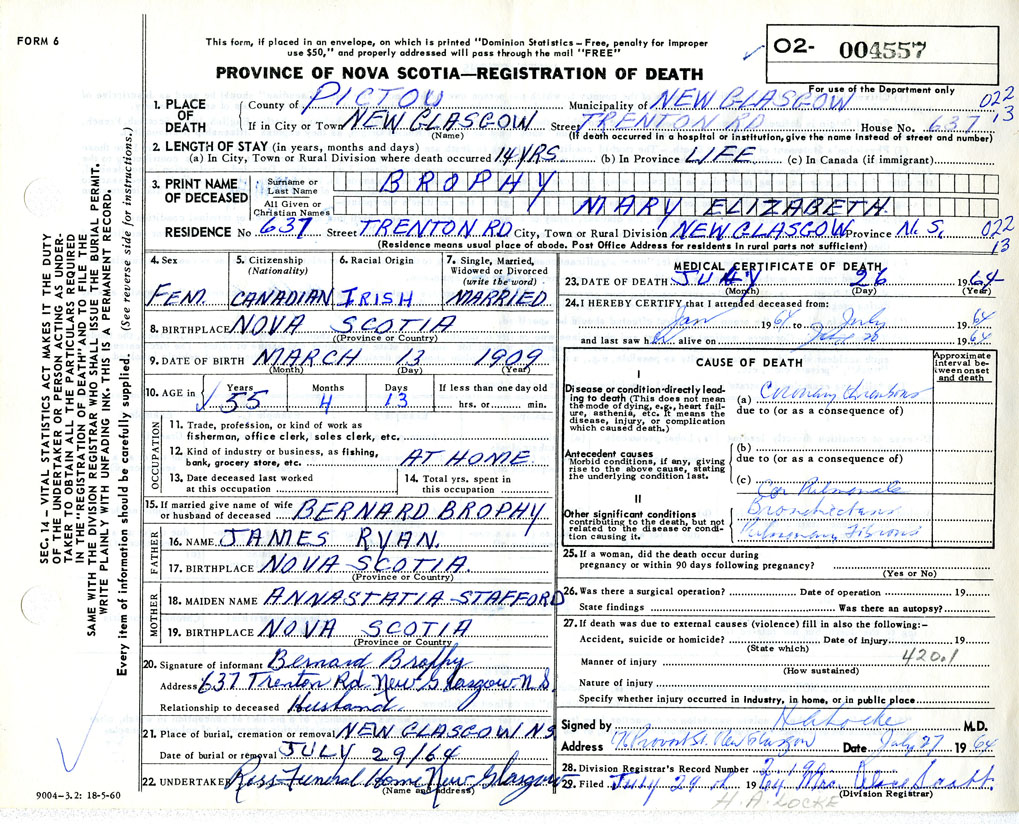 FORM 6
This form, if placed in an envelope, on which is printed "Dominion Statistics – Free, penalty for improper
use $50," and properly addressed will pass through the mail "FREE"
O2- 004557
PROVINCE OF NOVA SCOTIA—REGISTRATION OF DEATH
For use of the Department only
1. PLACE OF DEATH
County of PICTOU Municipality of NEW GLASGOW 022
If in City or Town NEW GLASGOW Street TRENTON RD House No. 637 13
(Name) (If death occurred in a hospital or institution, give the name instead of street and number)
2. LENGTH OF STAY (in years, months and days)
(a) In City, Town or Rural Division where death occurred 14 YRS (b) In Province LIFE (c) In Canada (if immigrant)
3. PRINT NAME OF DECEASED
Surname or Last Name BROPHY
All Given or Christian Names MARY ELIZABETH
RESIDENCE No. 637 Street TRENTON RD City, Town or Rural Division NEW GLASGOW Province N.S. 022
13
(Residence means usual place of abode. Post Office Address for residents in rural parts not sufficient)
4. Sex
FEM
5. Citizenship
(Nationality)
CANADIAN
6. Racial Origin
IRISH
7. Single, Married,
Widowed or Divorced
(write the word)
MARRIED
8. BIRTHPLACE NOVA SCOTIA
(Province or Country)
9. DATE OF BIRTH MARCH 13 1909
(Month) (Day) (Year)
10. AGE in
Years Months Days If less than one day old
55 4 13 hrs. or min.
OCCUPATION
11. Trade, profession, or kind of work as
fisherman, office clerk, sales clerk, etc.
12. Kind of industry or business, as fishing,
bank, grocery store, etc. AT HOME
13. Date deceased last worked
at this occupation
14. Total yrs. spent in
this occupation
15. If married give name of wife
or husband of deceased BERNARD BROPHY
FATHER
16. NAME JAMES RYAN.
17. BIRTHPLACE NOVA SCOTIA.
(Province or Country)
MOTHER
18. MAIDEN NAME ANNASTATIA STAFFORD
19. BIRTHPLACE NOVA SCOTIA
(Province or Country)
20. Signature of informant Bernard Brophy
Address 637 Trenton Rd. New Glasgow N.S.
Relationship to deceased Husband.
21. Place of burial, cremation or removal NEW GLASGOW NS
Date of burial or removal JULY 29/64
22. UNDERTAKER Ross Funeral Home New Glasgow
(Name and address)
MEDICAL CERTIFICATE OF DEATH
23. DATE OF DEATH JULY 26 1964
(Month) (Day) (Year)
24. I HEREBY CERTIFY that I attended deceased from:
Jan 1964 to July 1964
and last saw h alive on 20 1964
CAUSE OF DEATH
Approximate
interval be-
tween onset
and death
I
Disease or condition directly lead-
ing to death (This does not mean
the mode of dying, e.g., heart fail-
ure, asthenia, etc. It means the
disease, injury, or complication
which caused death.)
(a) Coronary thrombosis
due to (or as a consequence of)
Antecedent causes
Morbid conditions, if any, giving
rise to the above cause, stating
the underlying condition last.
(b)
due to (or as a consequence of)
(c)
II
Other significant conditions
contributing to the death, but not
related to the disease or condi-
tion causing it.
Cor Pulmonale
Bronchiectasis
Pulmonary Fibrosis
25. If a woman, did the death occur during
pregnancy or within 90 days following pregnancy?
(Yes or No)
26. Was there a surgical operation? Date of operation 19
State findings Was there an autopsy?
27. If death was due to external causes (violence) fill in also the following:–
Accident, suicide or homicide? Date of injury 19
(State which)
420.1
Manner of injury
(How sustained)
Nature of injury
Specify whether injury occurred in industry, in home, or in public place
Signed by H A Locke M.D.
Address Provost St. New Glasgow Date July 27 1964
28. Division Registrar's Record Number
29. Filed July 29 th 1964 Mrs.
(Division Registrar)
H. A. LOCKE
9004–3.2: 18-5-60
SEC. 14 – VITAL STATISTICS ACT MAKES IT THE DUTY
OF THE UNDERTAKER OR PERSON ACTING AS UNDER-
TAKER TO OBTAIN ALL THE PARTICULARS REQUIRED
IN THE "REGISTRATION OF DEATH" AND TO FILE THE
SAME WITH THE DIVISION REGISTRAR WHO SHALL ISSUE THE BURIAL PERMIT.
WRITE PLAINLY WITH UNFADING INK. THIS IS A PERMANENT RECORD.
Every item of information should be carefully supplied. (See reverse side for instructions.)